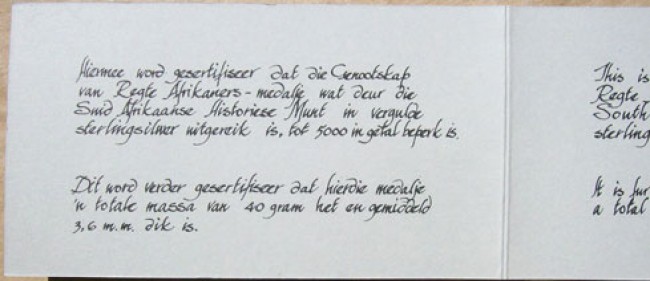 Hiermee word gesertifiseer dat die Genootskap
van Regte Afrikaners - medalje wat deur die
Suid Afrikaanse Historiese Munt in vergulde
sterlingsilwer uitgereik is, tot 5000 in getal beperk is.
Dit word verder gesertifiseer dat hierdie medalje
'n totale massa van 40 gram het en gemiddeld
3,6 m.m. dik is.
This is
Regte
South
sterling
It is fur
a total